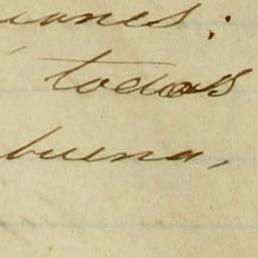 iones;
todos
buena,